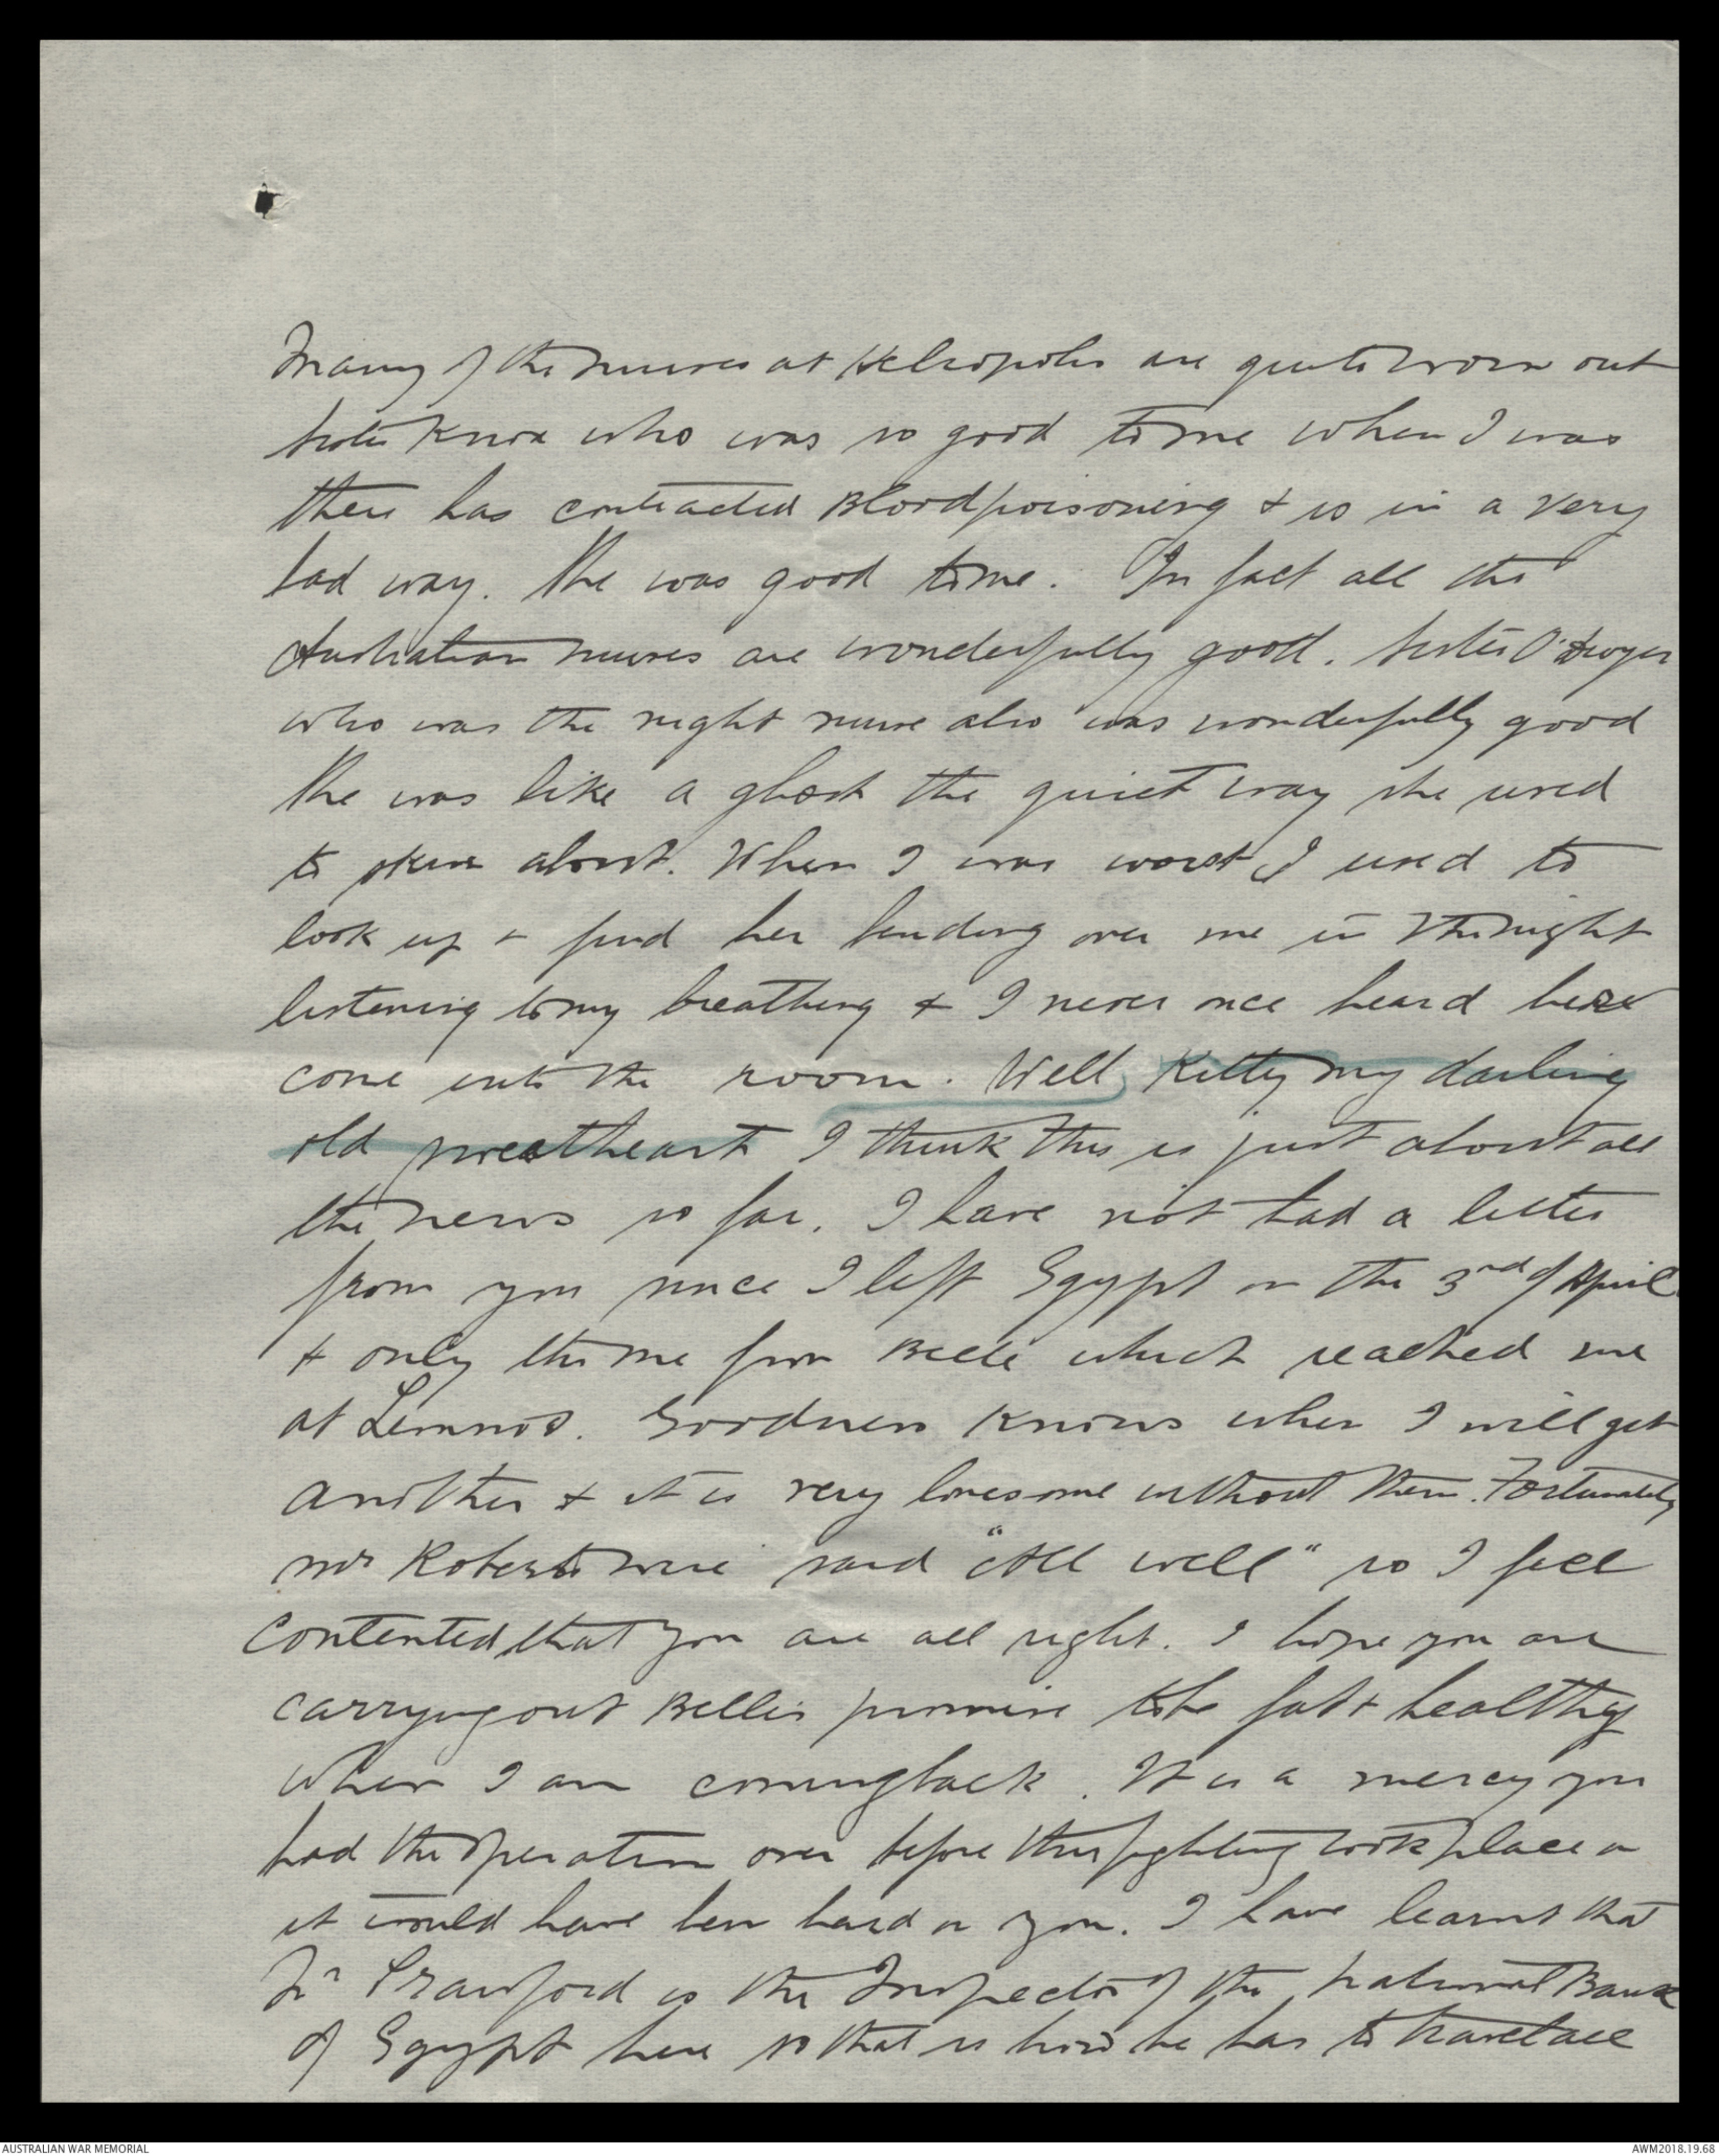 Many of the nurses at Heliopolis are quite worn out
Sister Knox who was so good to me when I was
there has contracted Blood poisoning & is in a very
bad way. She was good to me. In fact all the
Australian nurses are wonderfully good. Sister O'Dwyer
who was the night nurse also was wonderfully good
She was like a ghost the quiet way she used
to about. When I was worst I used to
look up & find her bending over me in the night
listening to my breathing & I never once heard her
come into the room. Well Kitty my darling
old sweetheart I think this is just about all
the news so far. I have not had a letter
from you since I left Egypt on the 3rd of April
& only the one from Belle which reached me
at Lemnos. Goodness knows when I will get
another & it is very lonesome without them. Fortunately
Mr Roberts wire said "All well" so I feel
contented that you are all right. I hope you are
carrying out Belle's promise to be fat & healthy
when I am coming back. It is a mercy you
had the operation over before this fighting took place or
it would have been hard on you. I have learnt that
Mr Crawford is the Inspector of the National Bank
of Egypt here so that is how he has to travel all
AUSTRALIAN WAR MEMORIAL
AWM2018.19.68